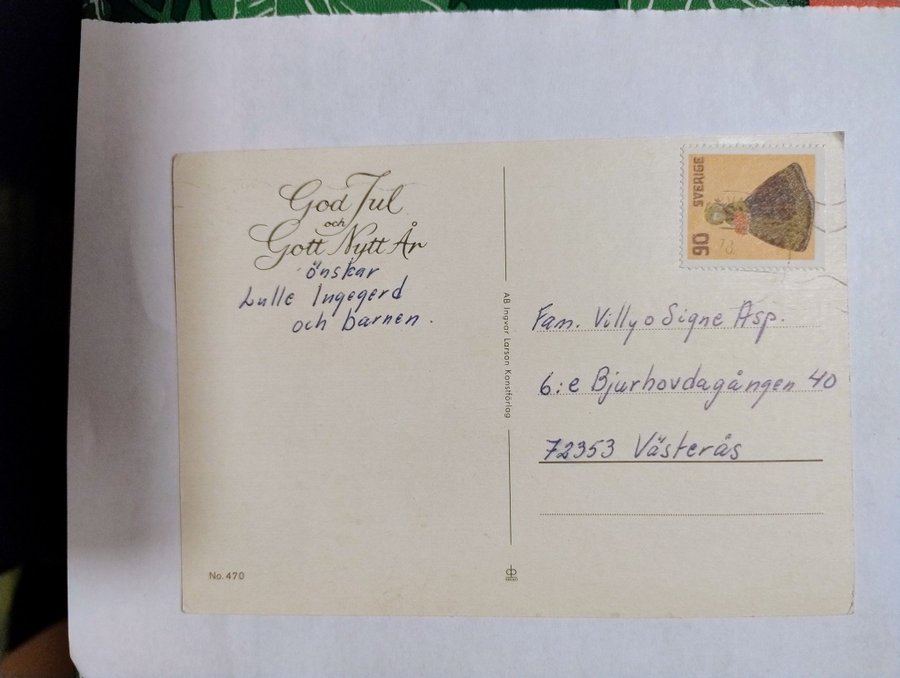 God Jul
och
Gott Nytt År
önskar
Lulle Ingegerd
och barnen.
No. 470
AB Ingvar Larson Konstförlag
SVERIGE
90
Fam. Villy o Signe Asp.
6:e Bjurhovdagången 40
72353 Västerås